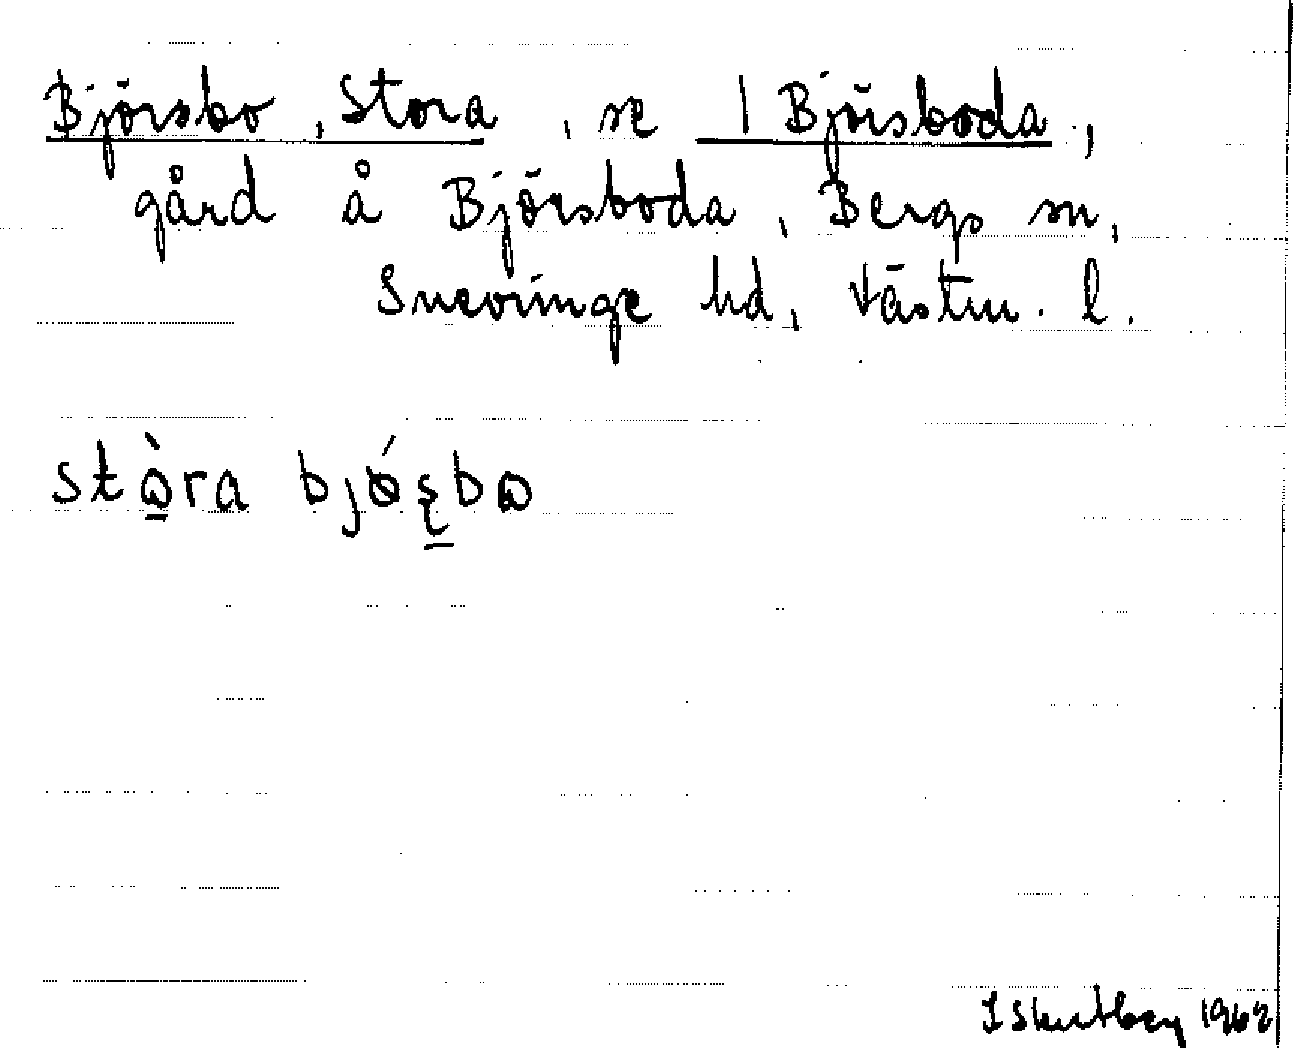 Björsbo, Stora, se 1 Björsboda,
gård å Björsboda, Bergs sn,
Snevringe hd, Västm. l.
stὼra bjǿʂbω
I Skutberg 1962